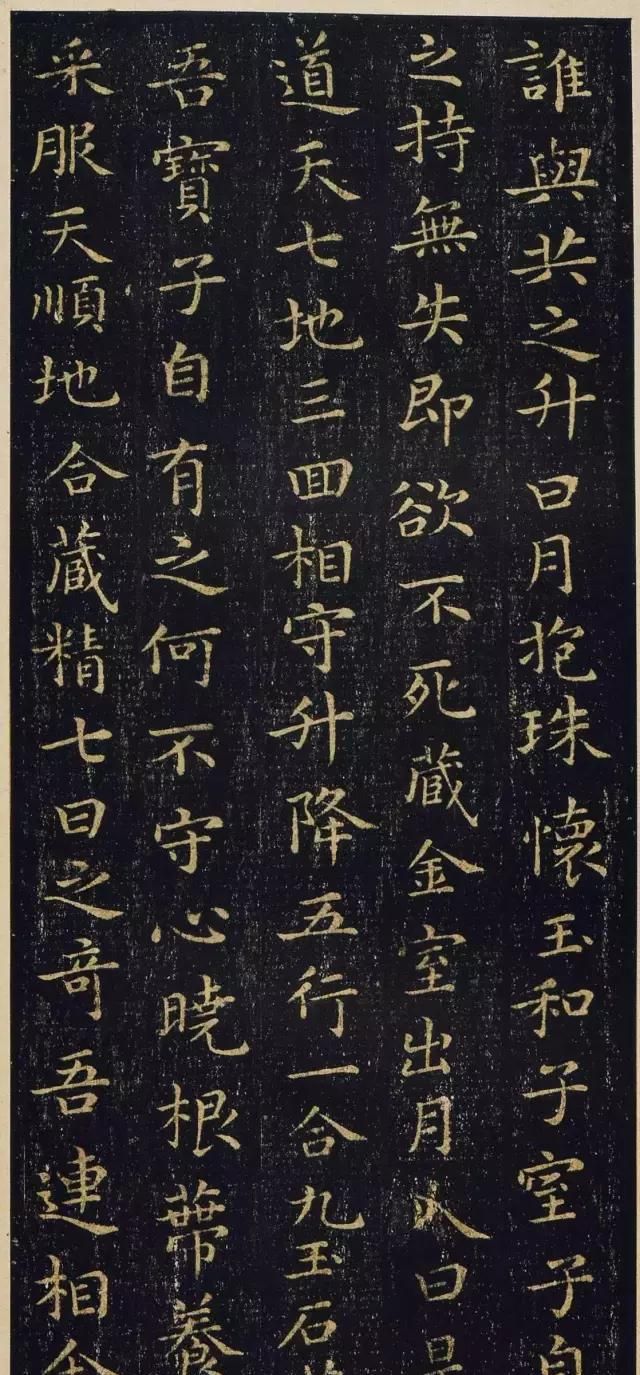 誰與共之升日月抱珠懷玉和子室子自
之持無失即欲不死藏金室出月入日是
道天七地三囬相守升降五行一合九玉石
吾寶子自有之何不守心曉根蔕養
采服天順地合藏精七日之竒吾連相